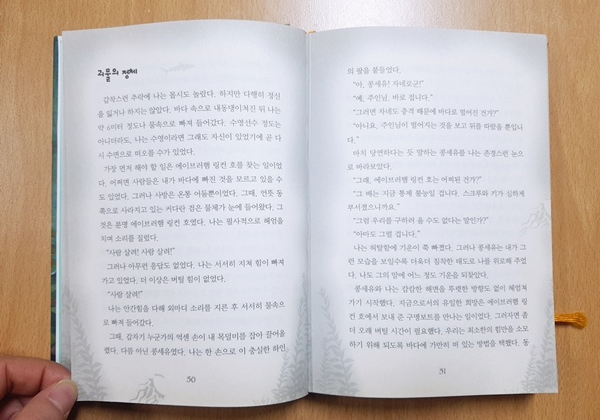 괴물의 정체
갑작스런 추락에 나는 몹시도 놀랐다. 하지만 다행히 정신
을 잃거나 하지는 않았다. 바다 속으로 내동댕이쳐진 뒤 나는
약 6미터 정도나 물속으로 빠져 들어갔다. 수영선수 정도는
아니더라도, 나는 수영이라면 그래도 자신이 있었기에 곧 다
시 수면으로 떠오를 수가 있었다.
가장 먼저 해야 할 일은 에이브러햄 링컨 호를 찾는 일이었
다. 어쩌면 사람들은 내가 바다에 빠진 것을 모르고 있을 수
도 있었다. 그러나 사방은 온통 어둠뿐이었다. 그때, 언뜻 동
쪽으로 사라지고 있는 커다란 검은 물체가 눈에 들어왔다. 그
것은 분명 에이브러햄 링컨 호였다. 나는 필사적으로 헤엄을
치며 소리를 질렀다.
“사람 살려! 사람 살려!”
그러나 아무런 응답도 없었다. 나는 서서히 지쳐 힘이 빠져
가고 있었다. 더 이상은 버틸 힘이 없었다.
“사람 살려!”
나는 안간힘을 다해 외마디 소리를 지른 후 서서히 물속으
로 빠져 들어갔다.
그때, 갑자기 누군가의 억센 손이 내 목덜미를 잡아 끌어올
렸다. 다름 아닌 콩세유였다. 나는 한 손으로 이 충실한 하인
50
의 팔을 붙들었다.
“아, 콩세유! 자네로군!”
“예, 주인님. 바로 접니다.”
“그러면 자네도 충격 때문에 바다로 떨어진 건가?”
“아니요, 주인님이 떨어지는 것을 보고 뒤를 따랐을 뿐입니
다.”
마치 당연하다는 듯 말하는 콩세유를 나는 존경스런 눈으
로 바라보았다.
“그래, 에이브러햄 링컨 호는 어찌된 건가?”
“그 배는 지금 통제 불능일 겁니다. 스크루와 키가 심하게
부서졌으니까요.”
“그럼 우리를 구하러 올 수도 없다는 말인가?”
“아마도 그럴 겁니다.”
나는 의말함에 기운이 쭉 빠졌다. 그러나 콩세유는 내가 그
런 모습을 보일수록 더욱더 침착한 태도로 나를 위로해 주었
다. 나도 그의 말에 어느 정도 기운을 되찾았다.
콩세유와 나는 캄캄한 해면을 뚜렷한 방향도 없이 헤엄쳐
가기 시작했다. 지금으로서의 유일한 희망은 에이브러햄 링
컨 호에서 보내 준 구명보트를 만나는 일이었다. 그러자면 좀
더 오래 버틸 시간이 필요했다. 우리는 최소한의 힘만을 소모
하기 위해 되도록 바다에 가만히 떠 있는 방법을 택했다. 동
51